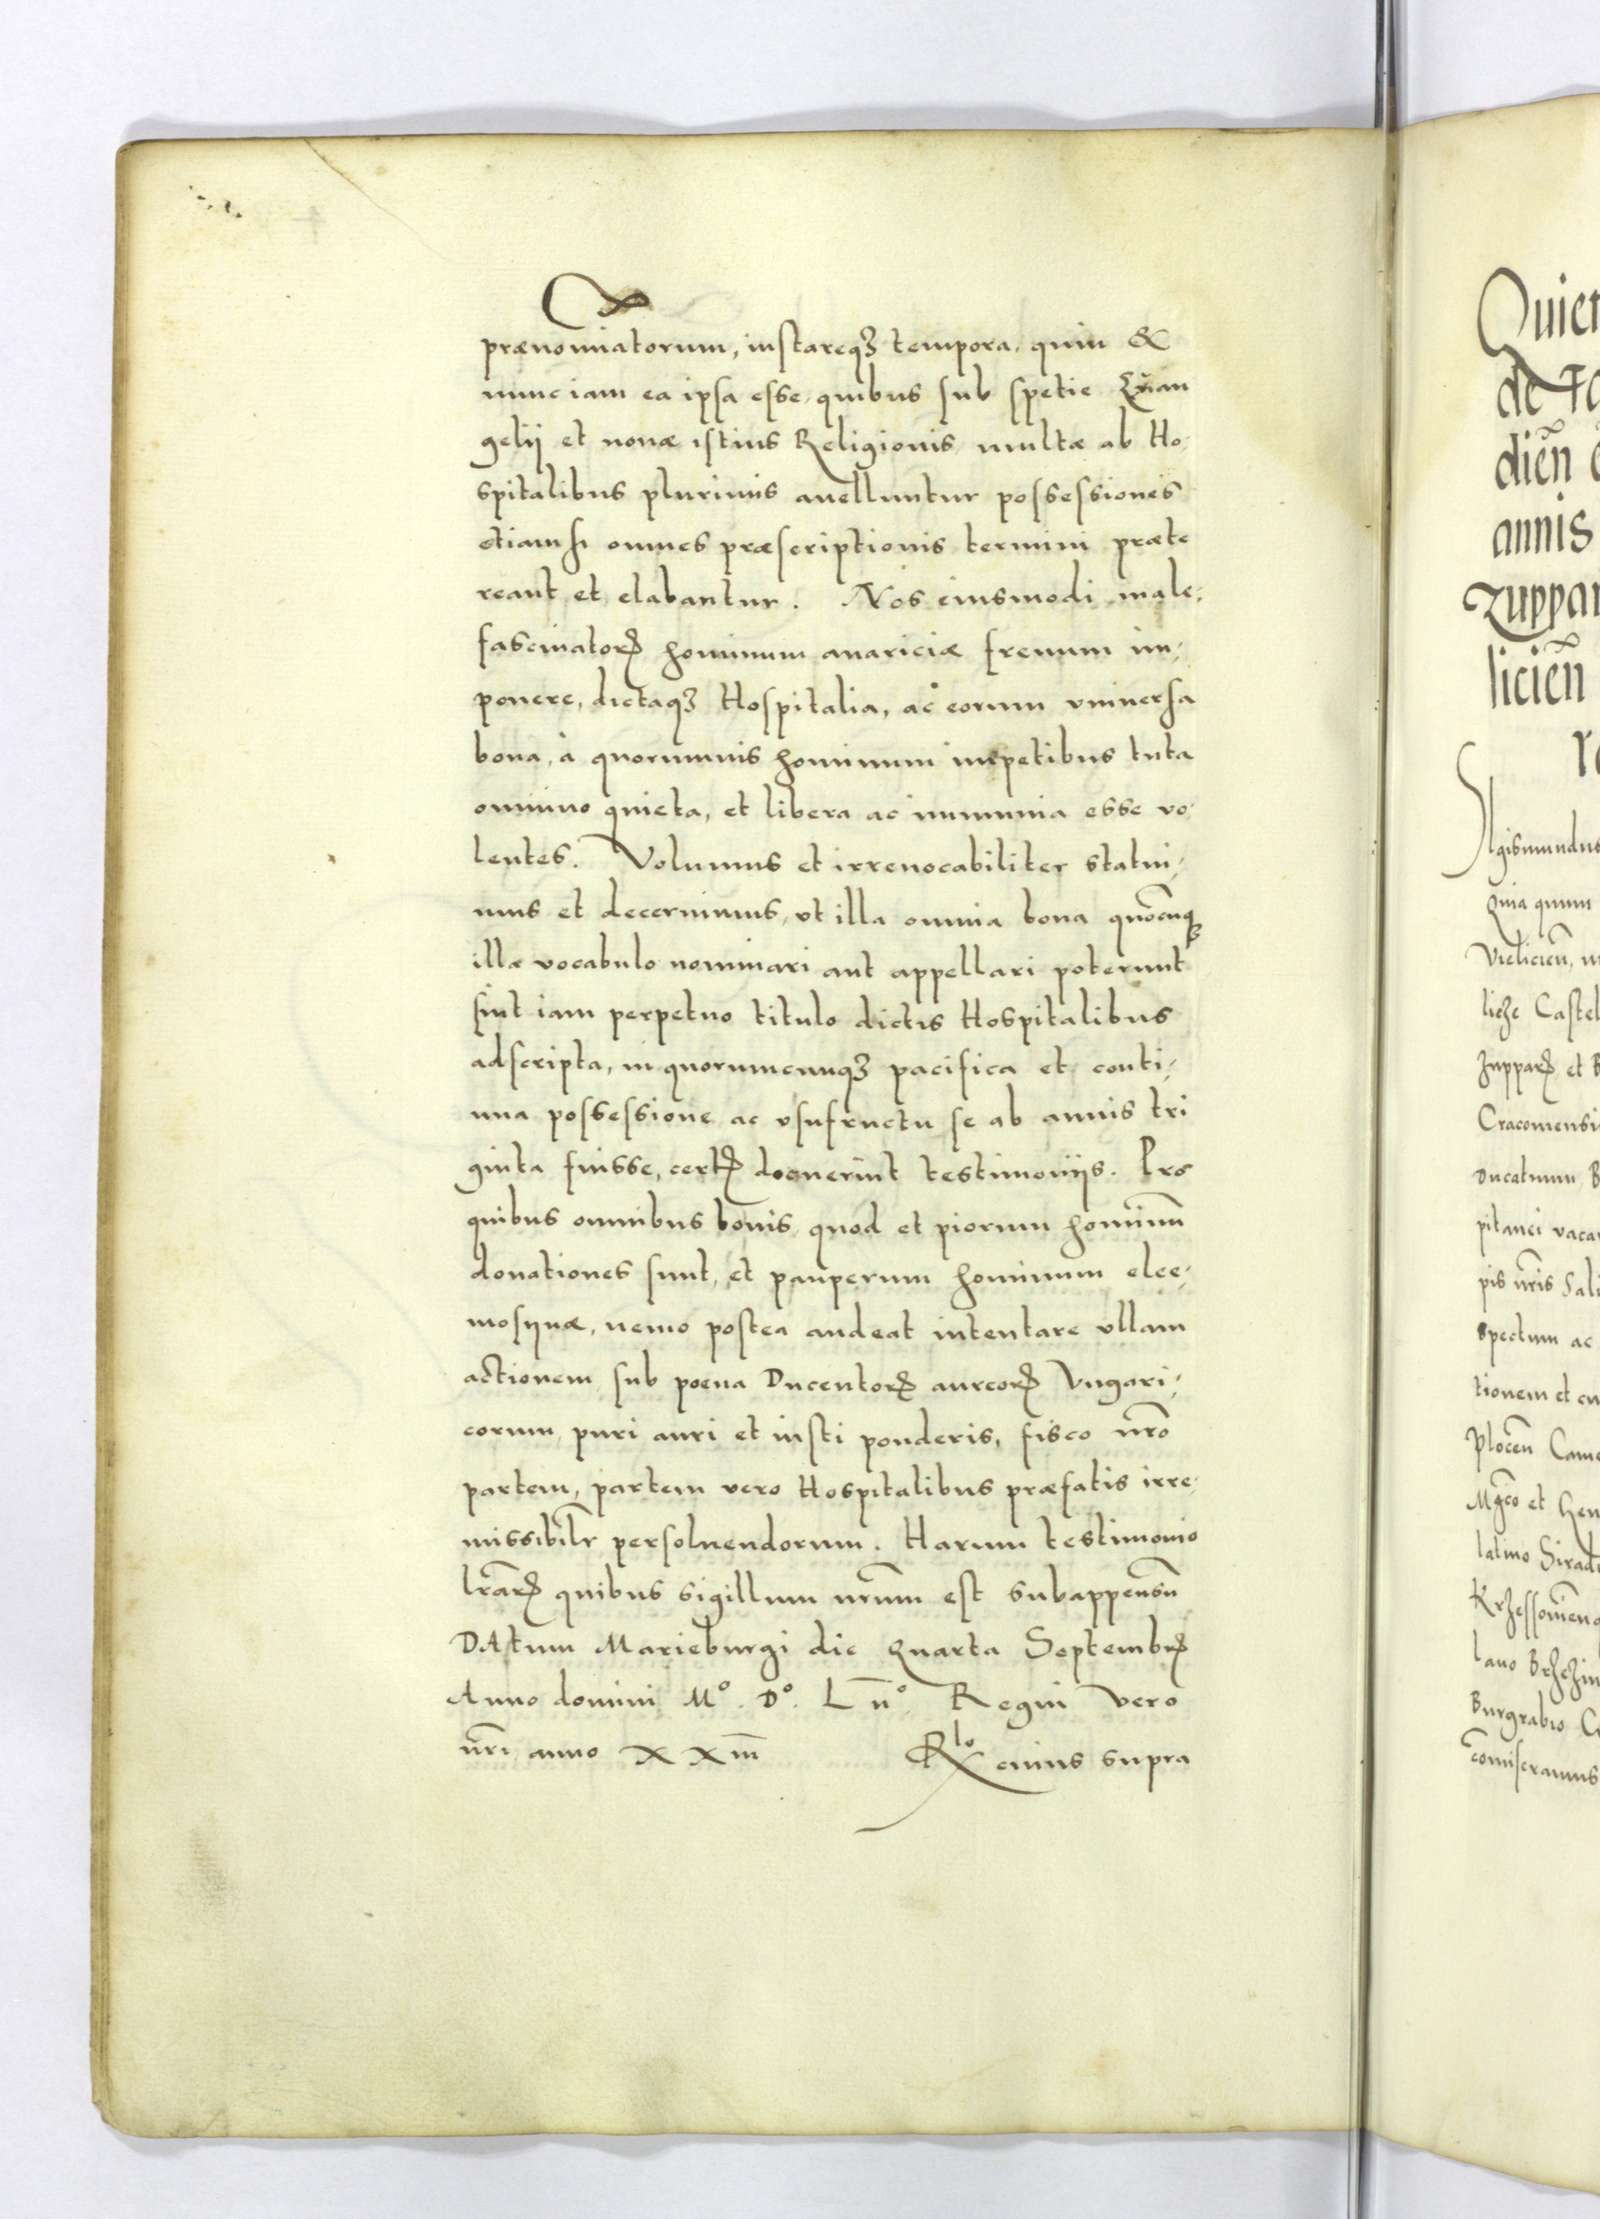 prænominatorum, instareqꝫ tempora, quin &
nunc iam ea ipsa esse, quibus sub spetie Euan
gelij et nouæ istius Religionis multæ ab Ho,
spitalibus plurimis auelluntur possessiones
etiamsi omnes præscriptionis termini præte
reant et elabantur. Nos eiusmodi male,
fascinatorꝝ hominum auariciæ frenum im,
ponere, dictaqꝫ Hospitalia, ac eorum vniuersa
bona, à quorumuis hominum impetibus tuta
omnino quieta, et libera ac immunia esse vo,
lentes. Volumus et irreuocabiliter statui,
mus et decernimus, vt illa omnia bona quocūqꝫ
illæ vocabulo nominari aut appellari poterunt
sint iam perpetuo titulo dictis Hospitalibus
adscripta, in quorumcunqꝫ pacifica et conti,
nua possessione ac vsufructu se ab annis tri
ginta fuisse, certꝭ docuerint testimonijs. Pro
quibus omnibus bonis, quod et piorum hominū
donationes sunt, et pauperum hominum elee,
mosijnæ, nemo postea audeat intentare vllam
actionem sub poena Ducentorꝝ aureorꝝ Vngari,
corum, puri auri et iusti ponderis, fisco nr̄o
partem, partem vero Hospitalibus præfatis irre,
missibilr̄ persoluendorum. Harum testimonio
lr̄arꝝ quibus sigillum nr̄um est subappensū
DAtum Marieburgi die Quarta Septembrꝭ
Anno domini Mº. Dº. L nº. Regni vero
nr̄i anno XXIII eiuus supra
Quier
de Fo
dien̄
annis
zuppar
licien̄
Sigismundus
Quia quum
Vielicien̄,
licze Castel
zupparꝝ et B
Cracouiensi
Ducatuum B
pitanei vaca
pis nr̄is Sali
spectum ac
tionem et cu
Plocen̄ Came
Mgco et Gen
latino Siradi
lano Brzezin
Burgrabio C
com̄iseramus